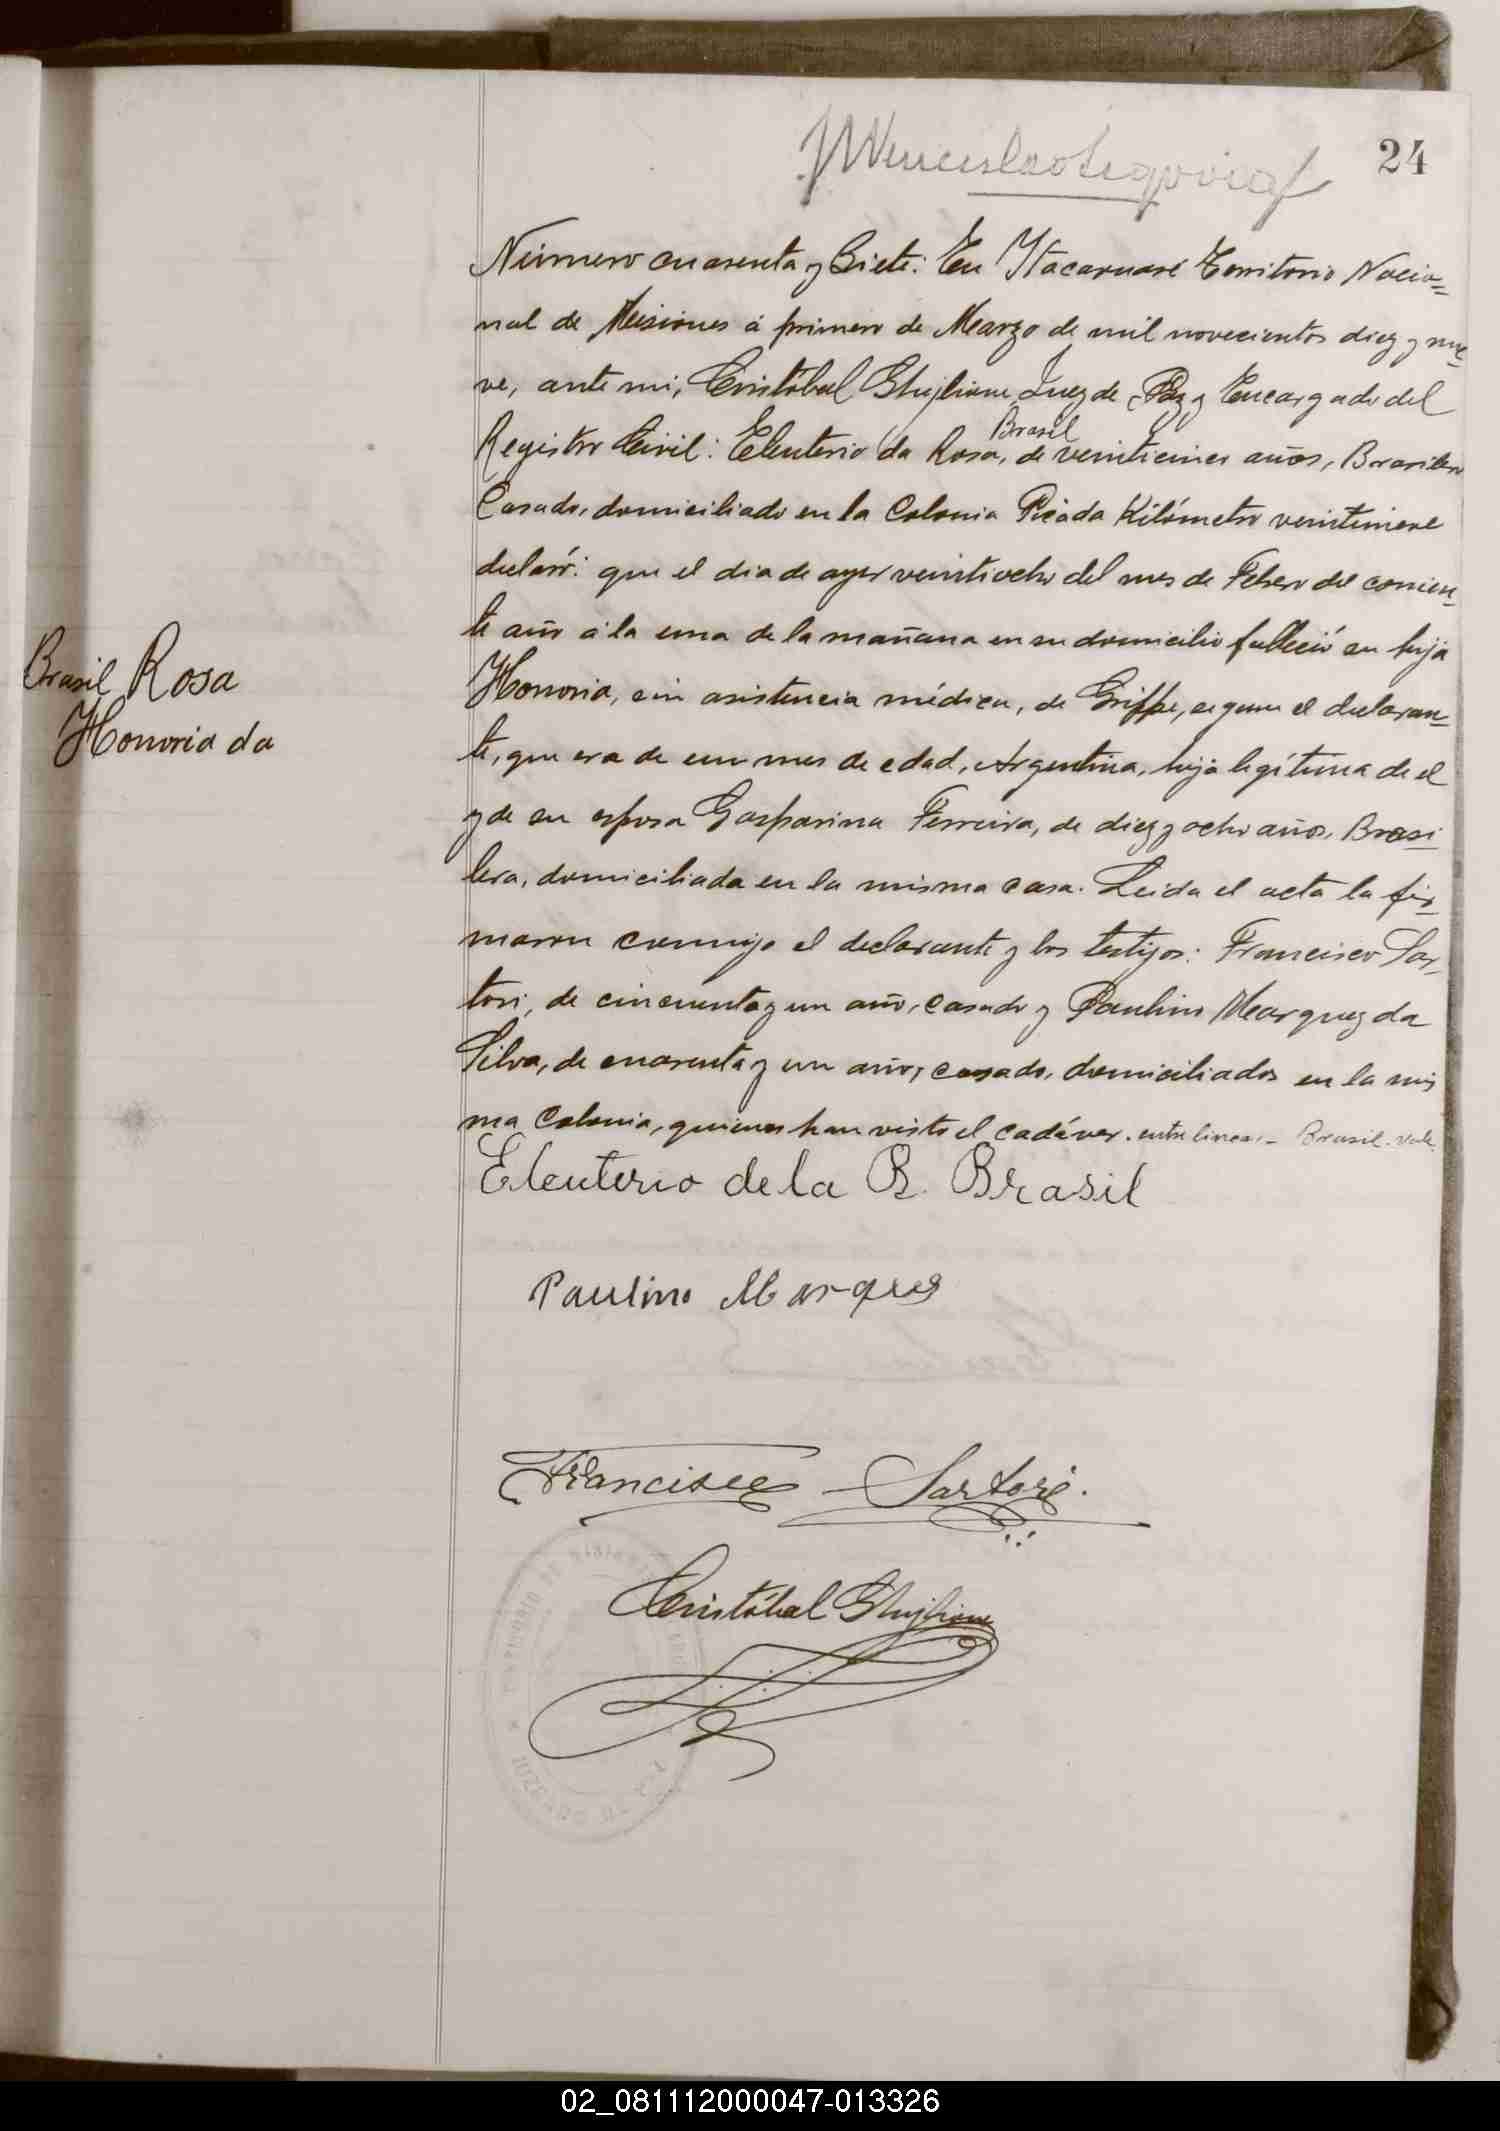 24
Número cuarenta y Siete: En Itacaruaré Territorio Nacio=
nal de Misiones á primero de Marzo de mil novecientos diez y nue=
ve, ante mi, Cristóbal Ghiglione, Juez de Paz y Encargado del
Registro Civil: Eleuterio da Rosa, Brasil de veinticinco años, Brasilero
Casado, domiciliado en la Colonia Picada Kilómetro veintinueve
declaró: que el dia de ayer veintiocho del mes de Febero del corrien=
te año á la una de la mañana en su domicilio falleció su hija
Brasil Rosa
Honoria da
Honoria, sin asistencia médica, de Grippe, segun el declaran=
te, que era de un mes de edad, Argentina, hija legítima de el
y de su esposa Gasparina Ferreira, de diez y ocho años, Brasi
lera, domiciliada en la misma casa. Leida el acta la fir=
maron conmigo el declarante y los testigos: Francisco Sar=
tori, de cincuenta y un año, casado y Paulino Marquez da
Silva, de cuarenta y un año, casado, domiciliados en la mis
ma Colonia, quienes han visto el cadáver. entre lineas - Brasil - vale.
Eleuterio de la R. Brasil
Paulino Marques
Francisco Sartori.
Cristóbal Ghiglione
02_081112000047-013326